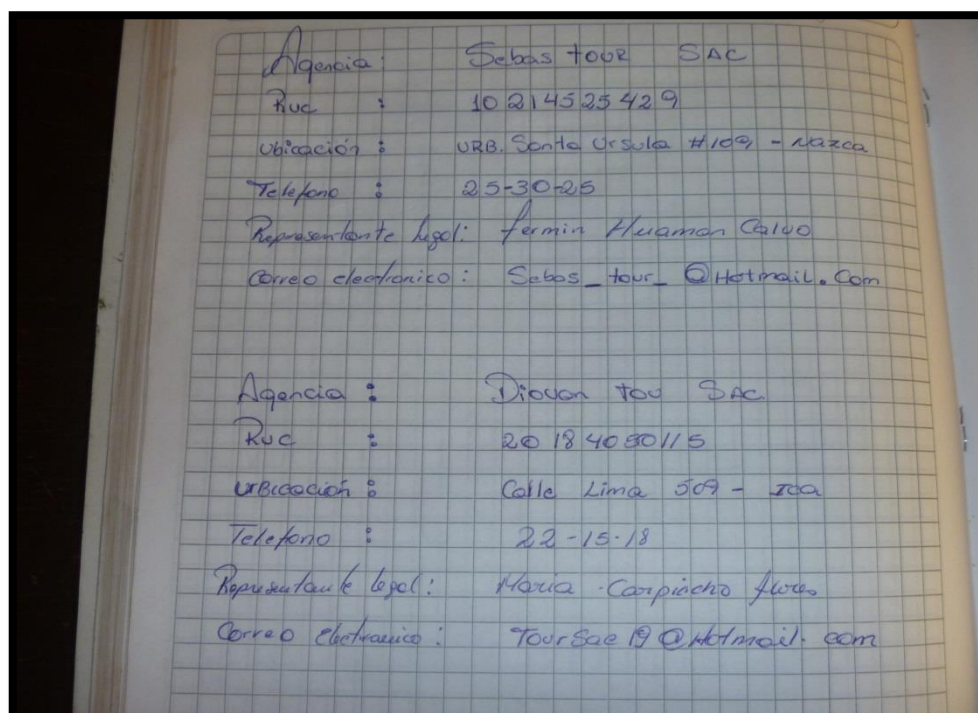 Agencia: Sebas tour SAC
Ruc : 10214525429
Ubicación : URB. Santa Ursula #109 - Nazca
Telefono : 25-30-25
Representante legal: fermin Huaman Calvo
Correo electronico : Sebas_tour_@Hotmail.Com
Agencia : Diovan tou SAC
Ruc : 20184050115
Urbicación : Calle Lima 509 - Ica
Telefono : 22-15-18
Representante legal : Maria Carpiacho flores
Correo electronico : TourSac19@Hotmail.com